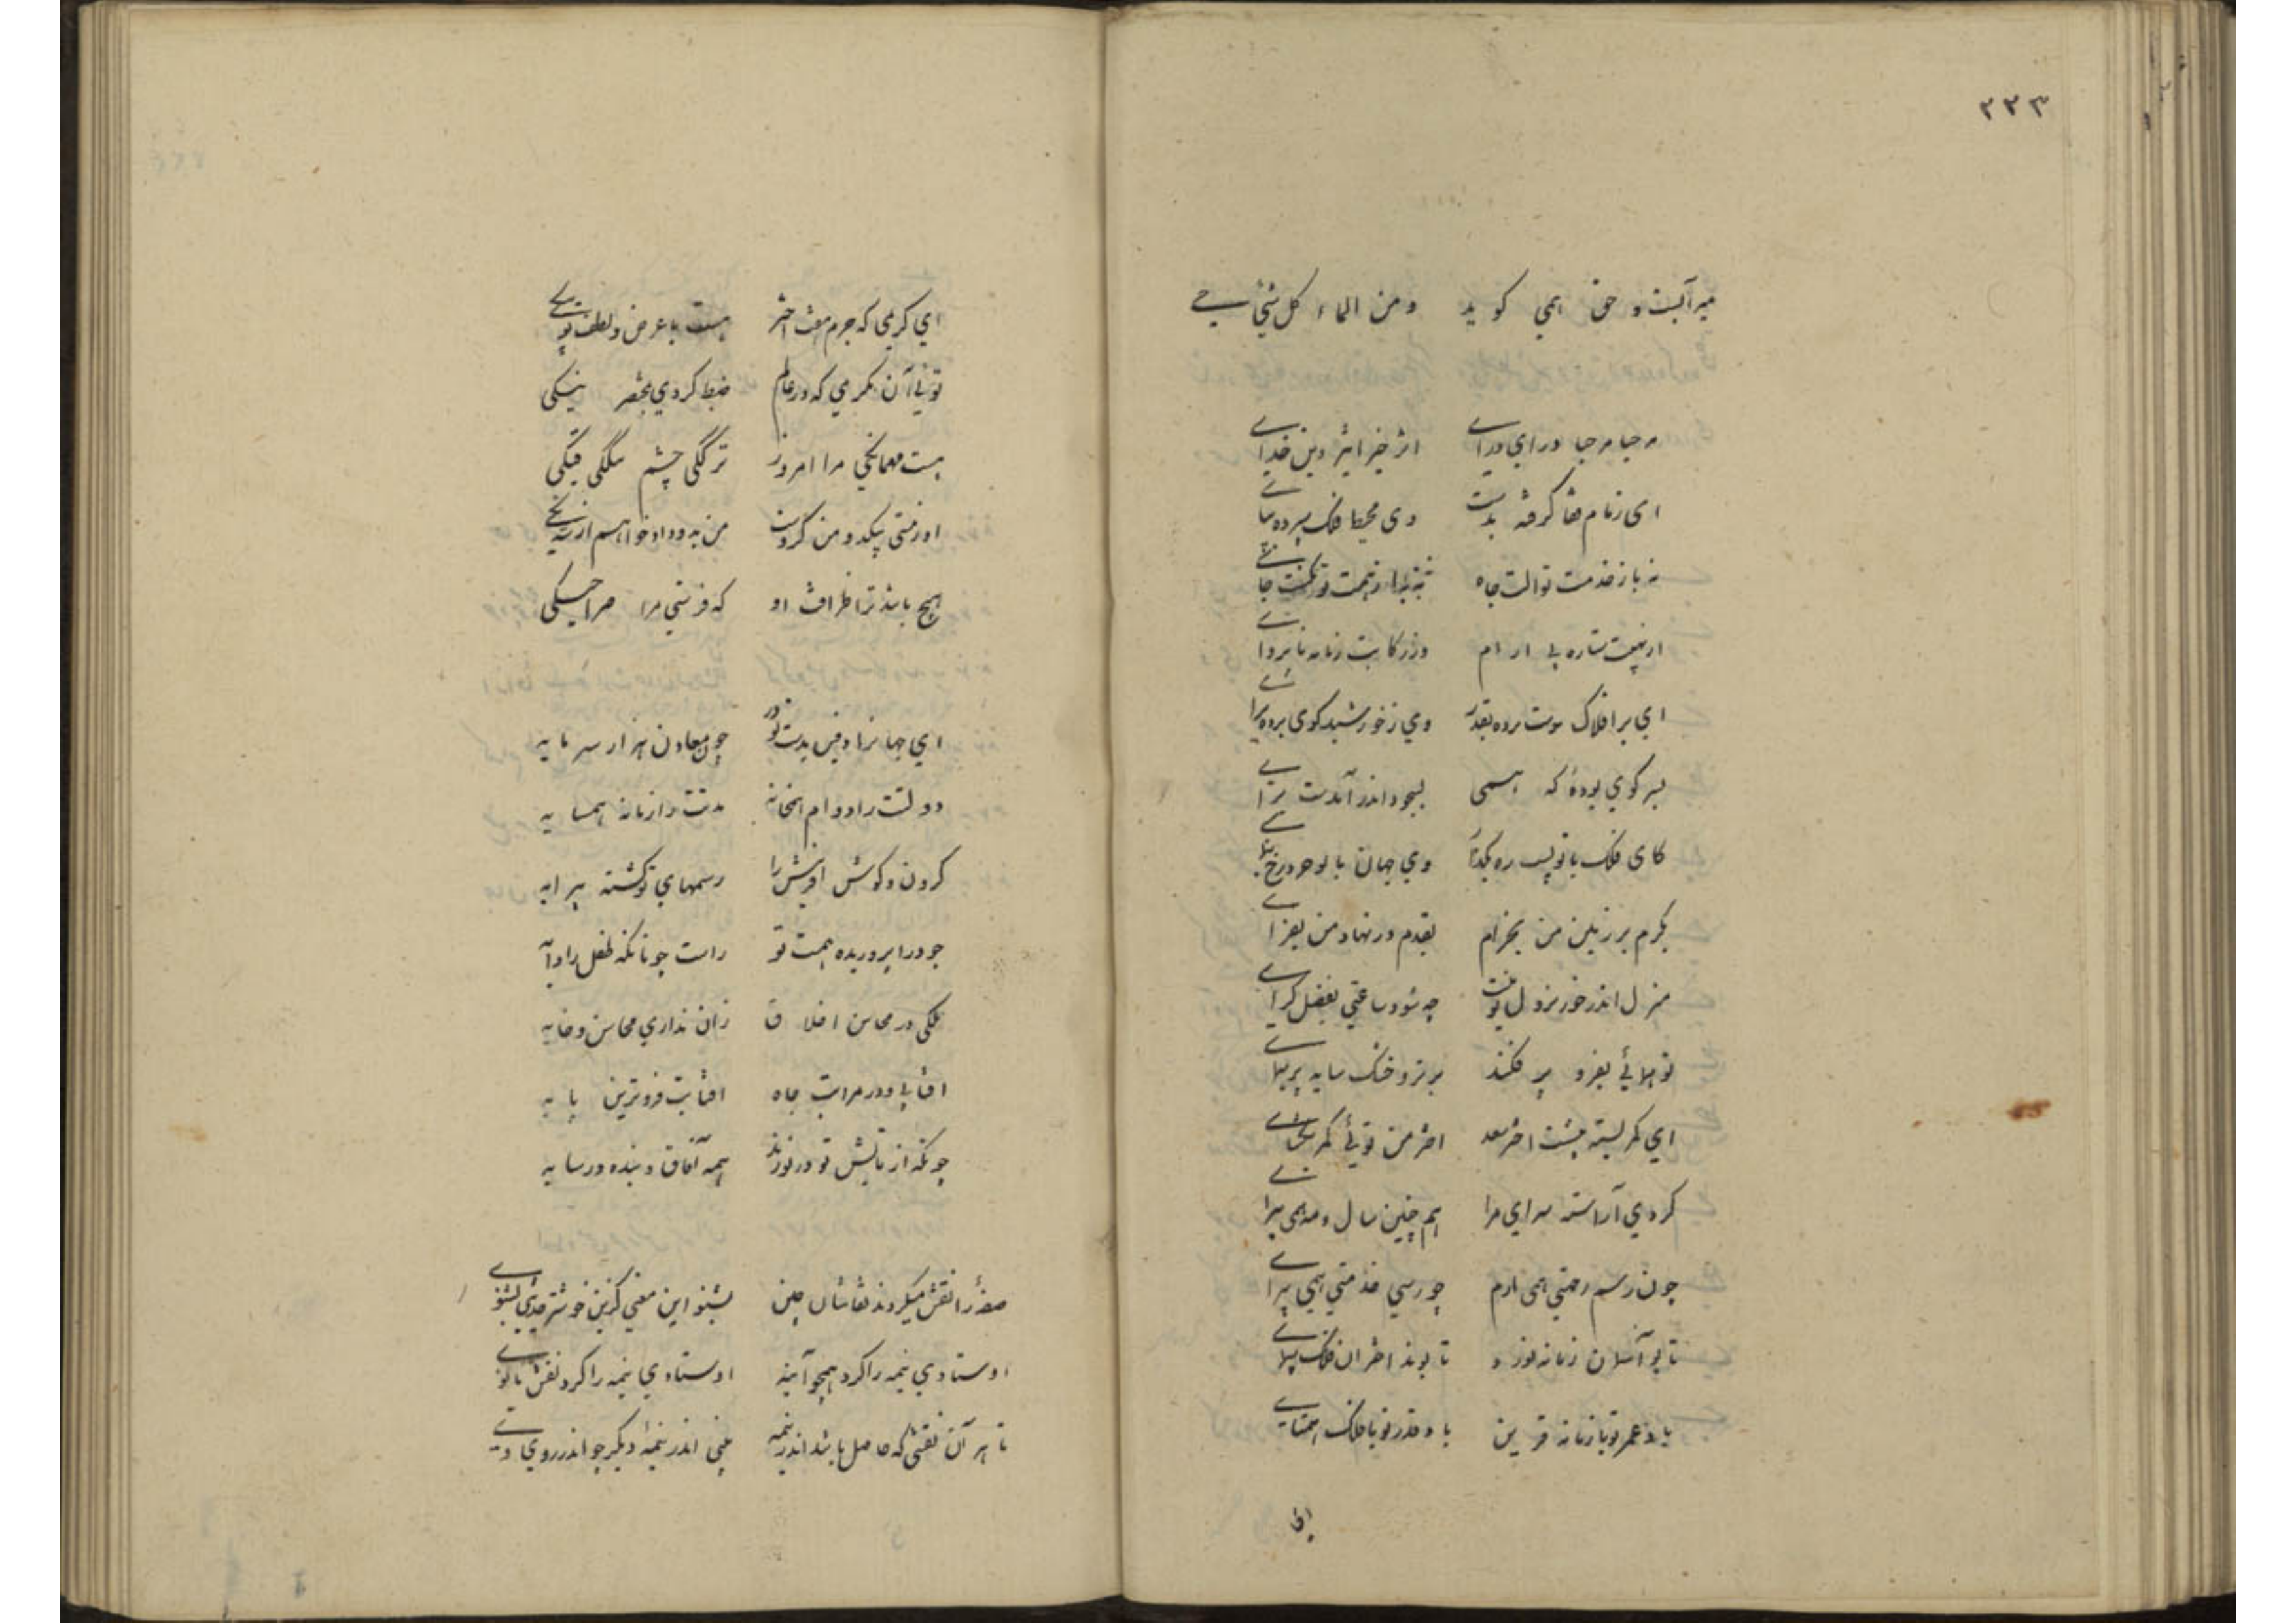 ۳۳۳
میر آبست و حق همی کوید ومن الماء کل شئ حی
مرحبا مرحبا درای درای اثر خیر اثیر دین خدای
ای زمام قضا گرفته بدست وی محیط فلک سپرده بپای
نه باز خدمت تو الت جاه
از نهیبت ستاره بی ارام وز رکابت زمانه ناپروای
ای بر افلاک دست برده بقدر وی ز خورشید کوی برده برای
بسر کوی بودهٔ که همی بسجود اندر آمدت سرای
کای فلک با تو پست ره بکذار وی جهان با تو هرزه رخ بنمای
بکرم بر زمین من بخرام بقدم در نهاد من بفزای
منزل اندر خور نزول تو نیست چه شود ساعتی بفضل کرای
تو همائی بفر و پر فکند بر تر و خشک سایه پر همای
ای کمر بسته پیشت اختر سعد اختر من توئی کمر بکشای
کردی آراسته سرای مرا هم چنین سال و مه همی آرای
چون رسم رحمتی همی آرم چو رسی خدمتی همی پیرای
تا بر آسان زمانه نورد و تا بوند اختران فلک پیمای
باد عمر تو با زمانه قرین باد قدر تو با فلک همتای
ای
ای کریمی که جرم هفت اختر هست با عرض و لطف تو
توئی آن مکرمی که در عالم ضبط کردی بخنصر نیکی
هست مهمانکی مرا امروز ترککی چشم تنککی قیکی
او زمستی پلید و من گروت من به دو داد خواهم از
هیچ باشد ترا ظرافت او که فرستی مرا صراحیکی
ای جهانرا وفین بدست تو در چون معادن هزار سر مایه
دولتت را دوام همخانه مدتت را زمانه همسایه
کردن و کوش افرینش را رسمهای تو کشته پیرایه
جود را پروریده همت تو راست چونانکه طفل را دایه
ملکی در محاسن اخلاق زان نداری محاسن و خایه
افتابی و در مراتب جاه افتابت فروترین پایه
چونکه از تابش تو در نورند همه آفاق و بنده در سایه
صفهٔ را نقش میکردند نقاشان چین بشنو این معنی کزین خوشتر حدیثی نشنوی
اوستادی نیمه را کرد همچو آینه اوستادی نیمه را کرد نقش مانوی
تا هر آن نقشی که حاصل باشد اندر نیمه بینی اندر نیمهٔ دیکر چو اندر روی وی